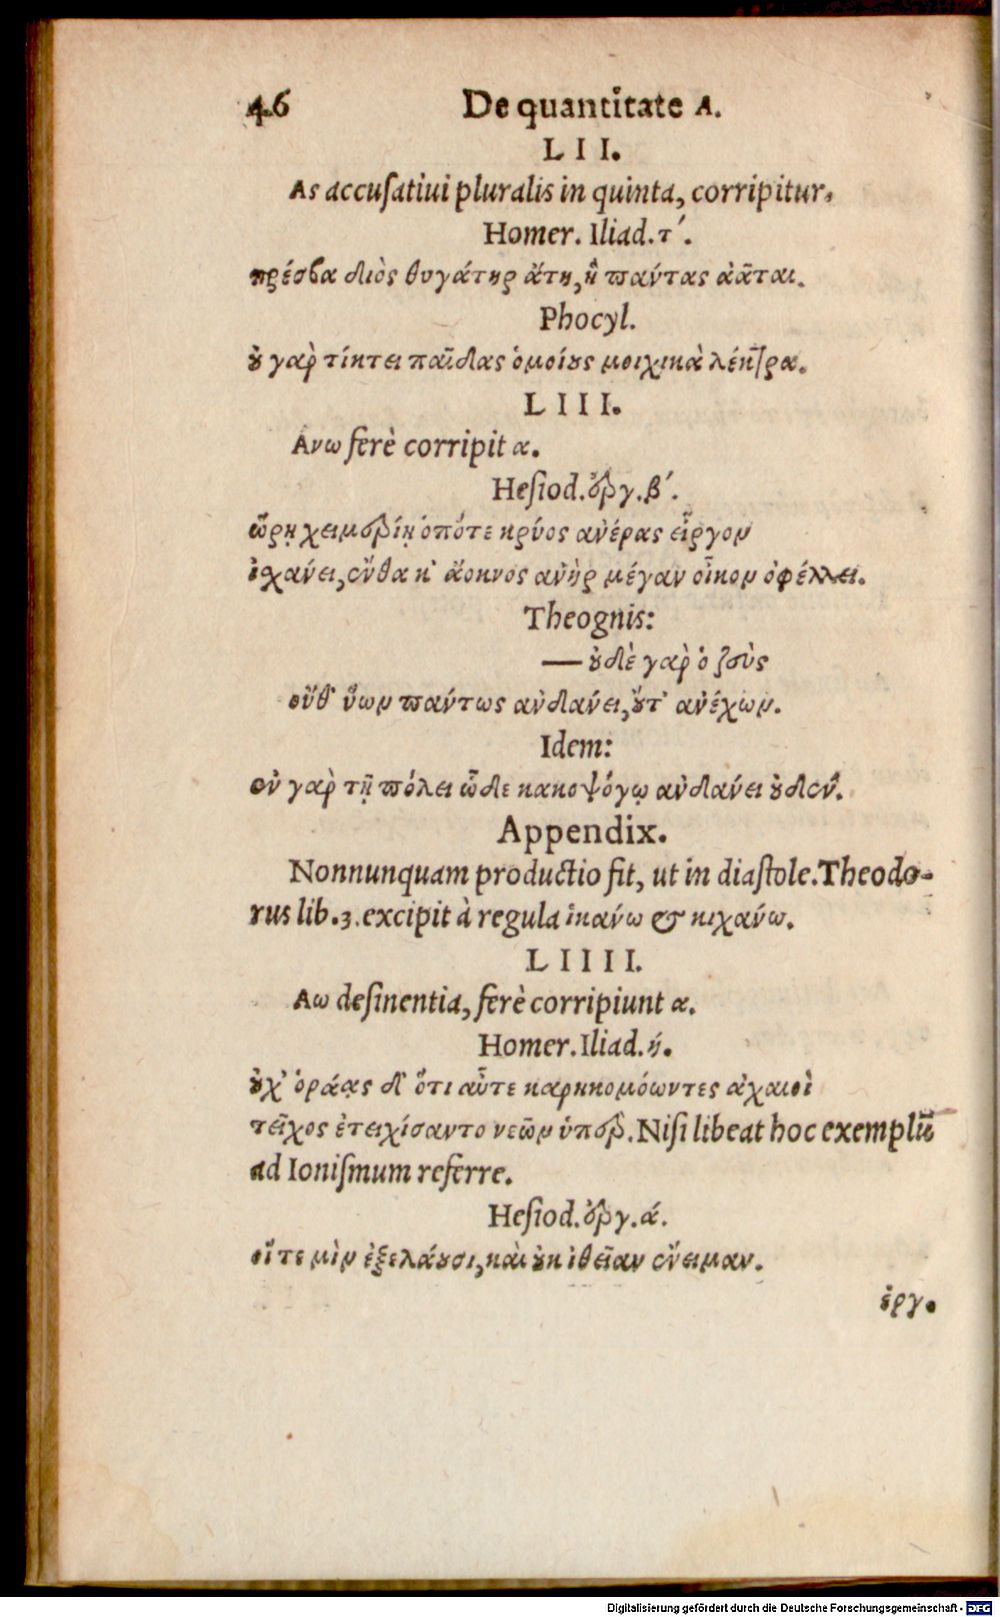 46 De quantitate A.
LII.
As accuſatiui pluralis in quinta, corripitur.
Homer. Iliad. τ´.
πρέσβα διὸς θυγάτηρ ἄτη, ἣ πάντας ἀᾶται.
Phocyl.
οὐ γαρ̀ τίκτει παῖδας ὁμοίους μοιχικὰ λέκτρα.
LIII.
Ανω ferè corripit α.
Heſiod. ἔργ. β´.
ὥρῃ χειμερίῃ ὁπότε κρύος ανέρας εἶργον
ἰσχανει, ἔνθα κ' ἄοκνος ανὴρ μέγαν οἶκον ὀφέλλει.
Theognis:
— οὐδὲ γαρ̀ ὁ ζεὺς
οὔθ' ὕων πάντως ανδάνει, οὔτ' ανέχων.
Idem:
ἐν γαρ̀ τῇ πόλει ὧδε κακοψόγῳ ανδάνει οὐδέν.
Appendix.
Nonnunquam productio fit, ut in diaſtole. Theodo-
rus lib. 3. excipit à regula ἱκανω & κιχανω.
LIIII.
Αω deſinentia, ferè corripiunt α.
Homer. Iliad. ή.
οὐχ' ὁράᾳς δ' ὅτι αὖτε καρηκομόωντες ἀχαιοὶ
τεῖχος ἐτειχίσαντο νεῶν ὑπερ̀. Niſi libeat hoc exemplũ
ad Ioniſmum referre.
Heſiod. ἔργ. ά.
οἵ τε μὶν ἐξελάουσι, καὶ οὐκ ἰθεῖαν ἔνειμαν.
ἐργ.
Digitalisierung gefördert durch die Deutsche Forschungsgemeinschaft - DFG